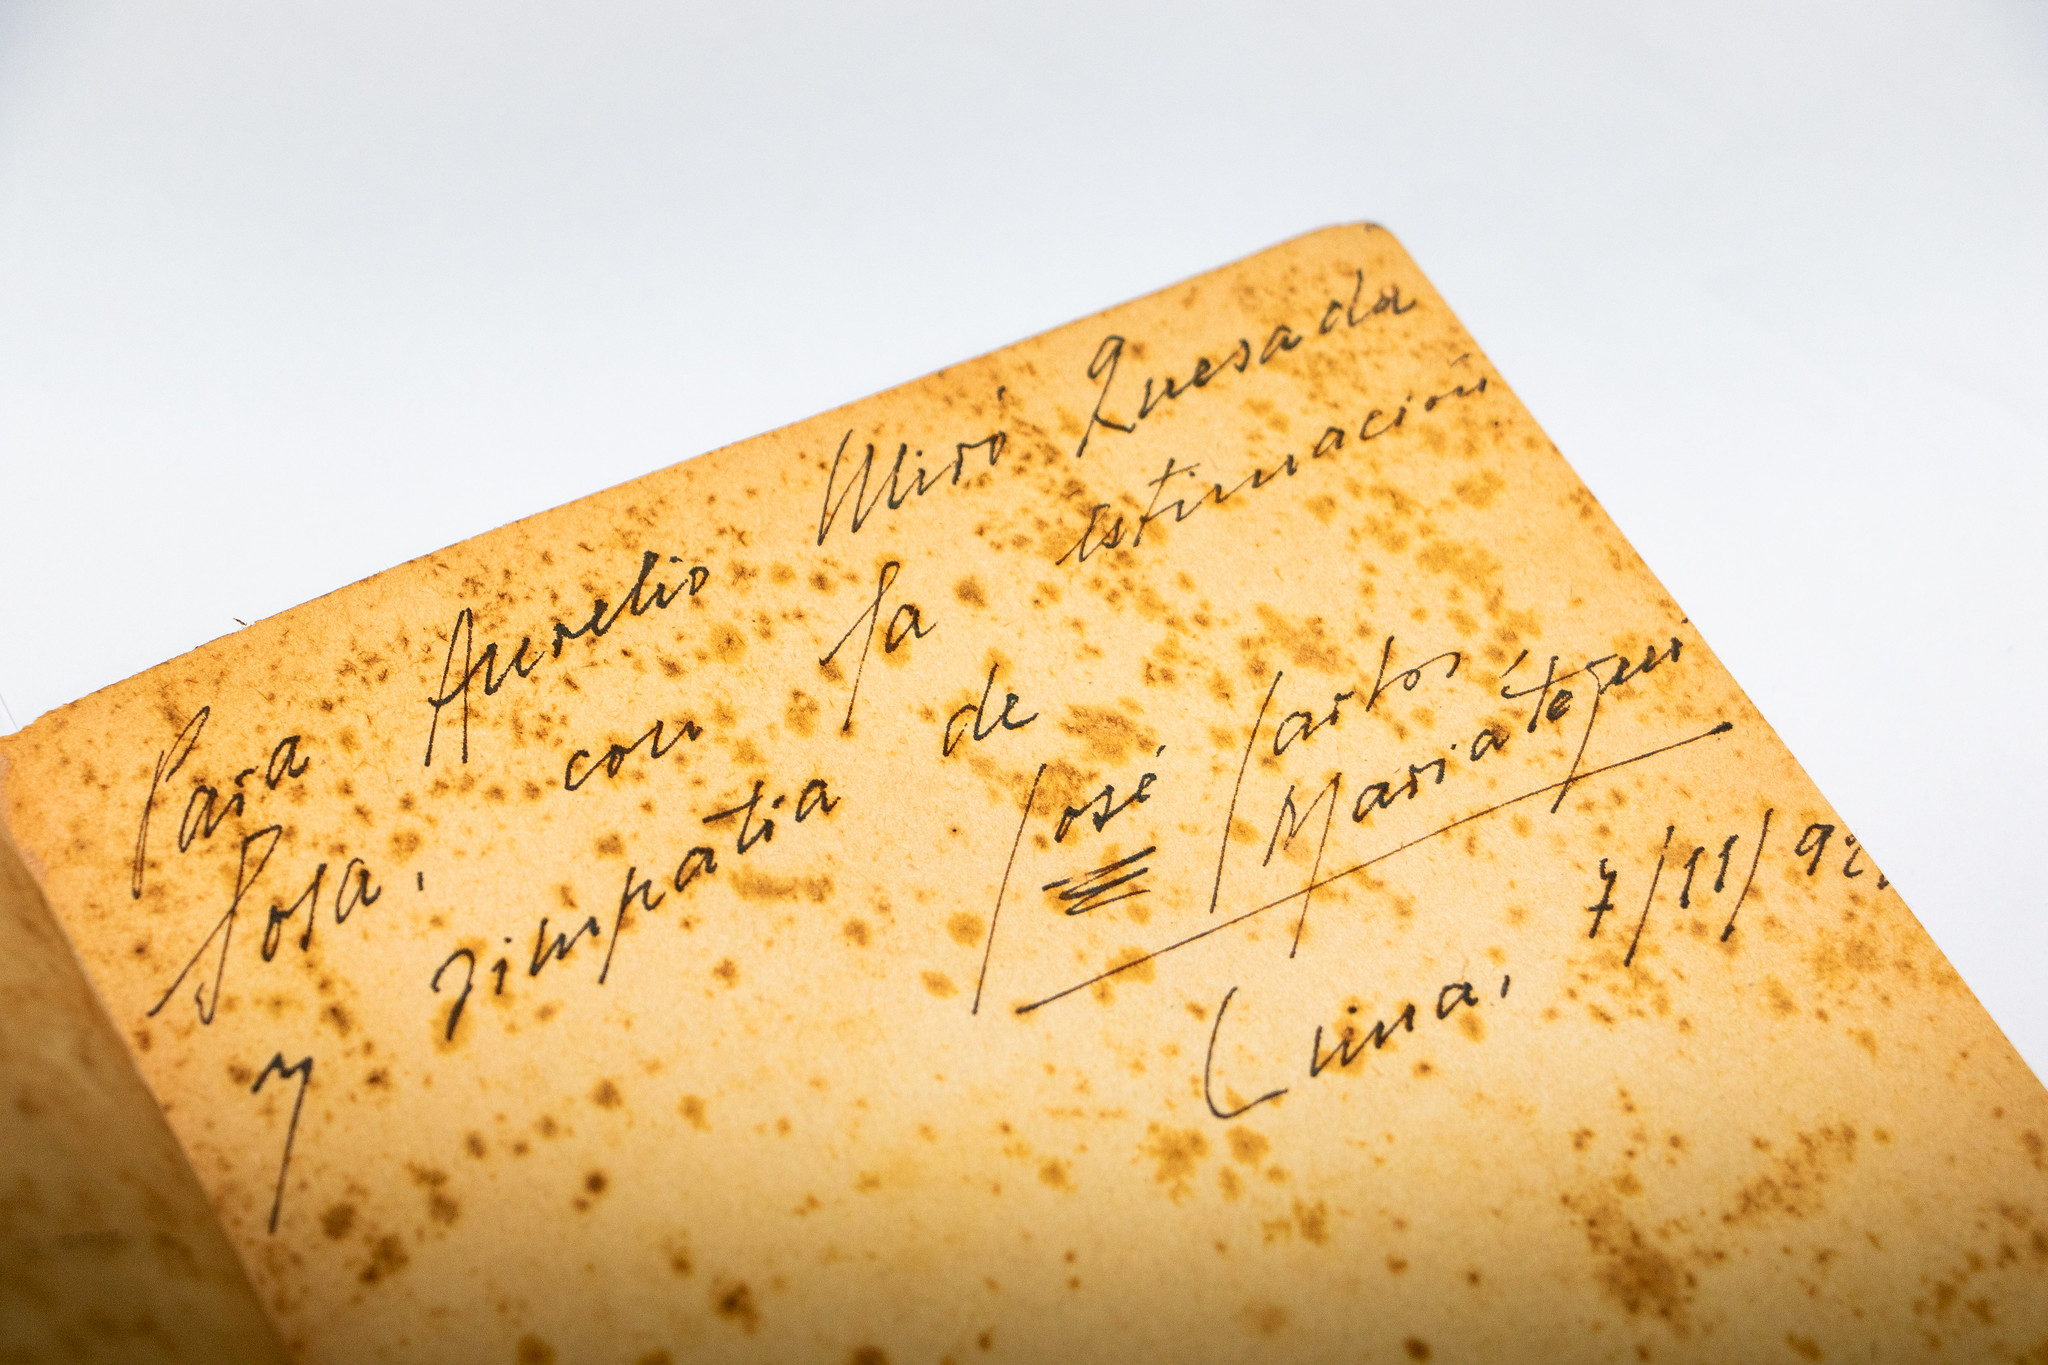 Para Aurelio Miró Quesada
Sosa, con la estimación
y simpatía de
José Carlos
Mariátegui
Lima,